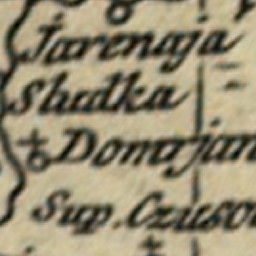 Jarenaja
Sludka
Domrjan
Sup. Czusov